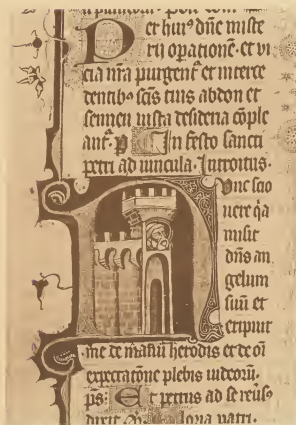 Per hui⁹ dñe miste
rij opationē· et vi
cia nra purgent᷑ et interce
dentib⁹ scīs tuis abdon et
sennen iusta desideria cōple
ant᷑· P In festo sancti
petri ad vincula· Introitus·
Nunc scio
uere q̄a
misit
dñs an
gelum
suū et
eripuit
me de manu herodis et de oī
expectacōne plebis iudeoꝝ·
ps· Et petrus ad se reūs⁹
dixit Gloria patri·